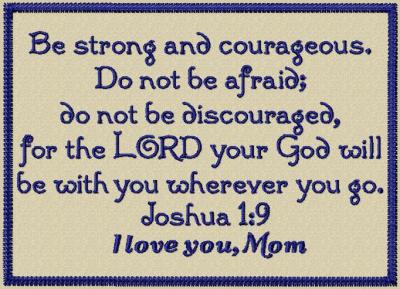 Be strong and courageous.
Do not be afraid;
do not be discouraged,
for the LORD your God will
be with you wherever you go.
Joshua 1:9
I love you, Mom